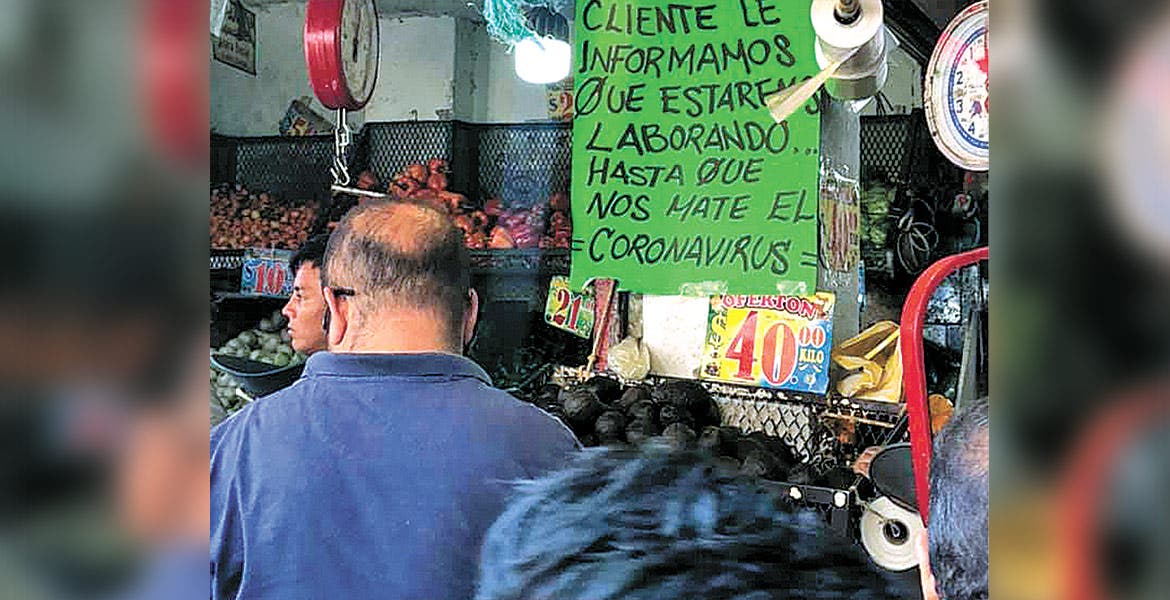 CLIENTE LE
INFORMAMOS
QUE ESTAREMOS
LABORANDO...
HASTA QUE
NOS MATE EL
=CORONAVIRUS=
$10
21
OFERTON
40.00
KILO